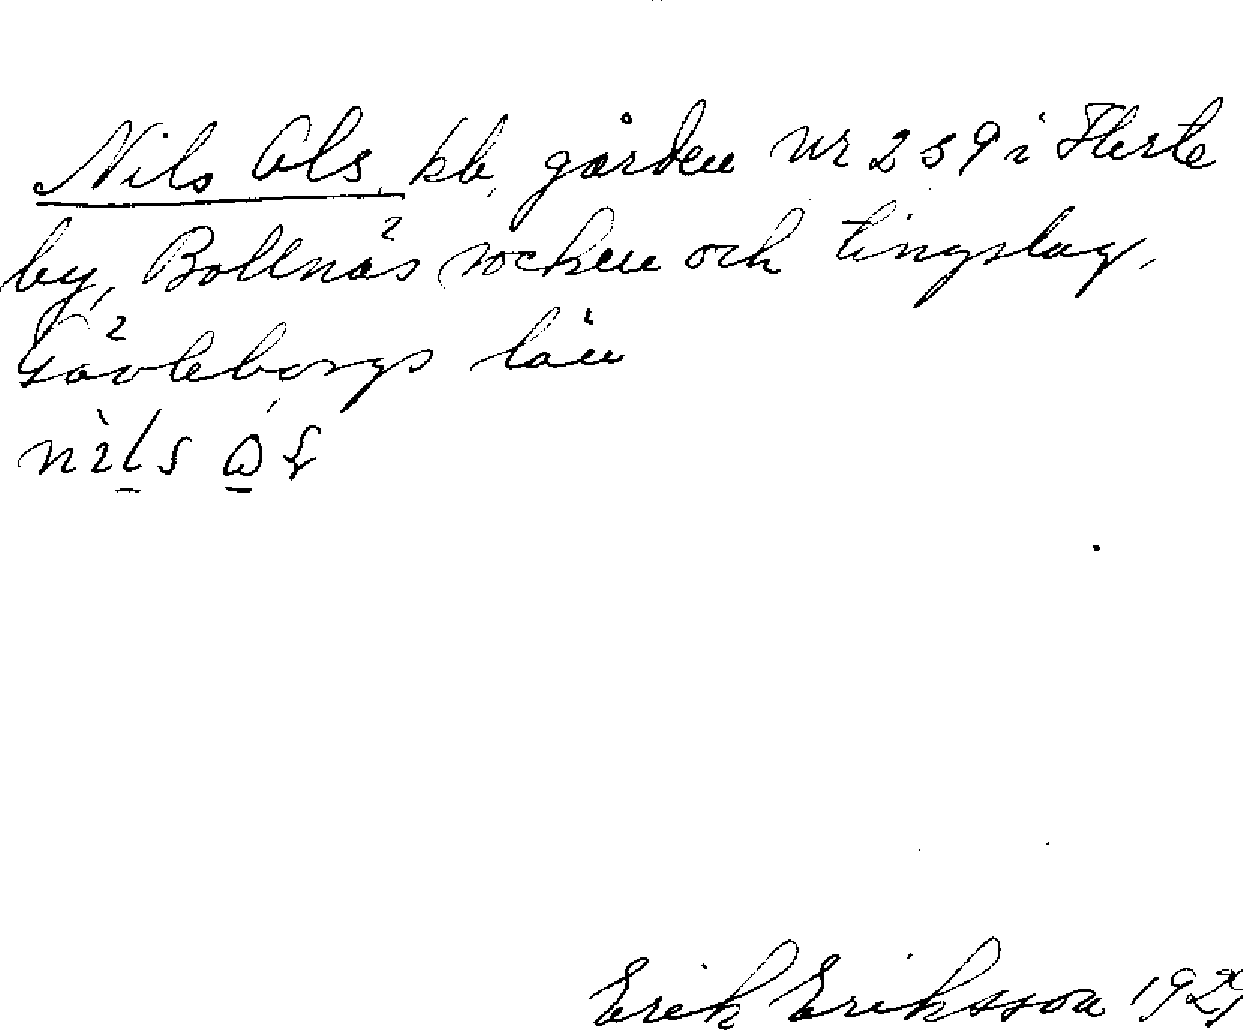 Nils Ols kb. gården nr 259 i Herte
by, Bollnäs socken och tingslag,
Gävleborgs län
nils
Erik Eriksson 1929